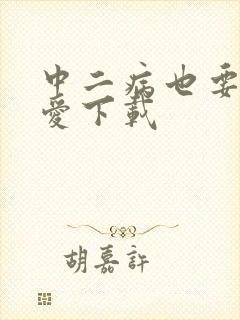 中二病也要
愛下載
胡嘉許